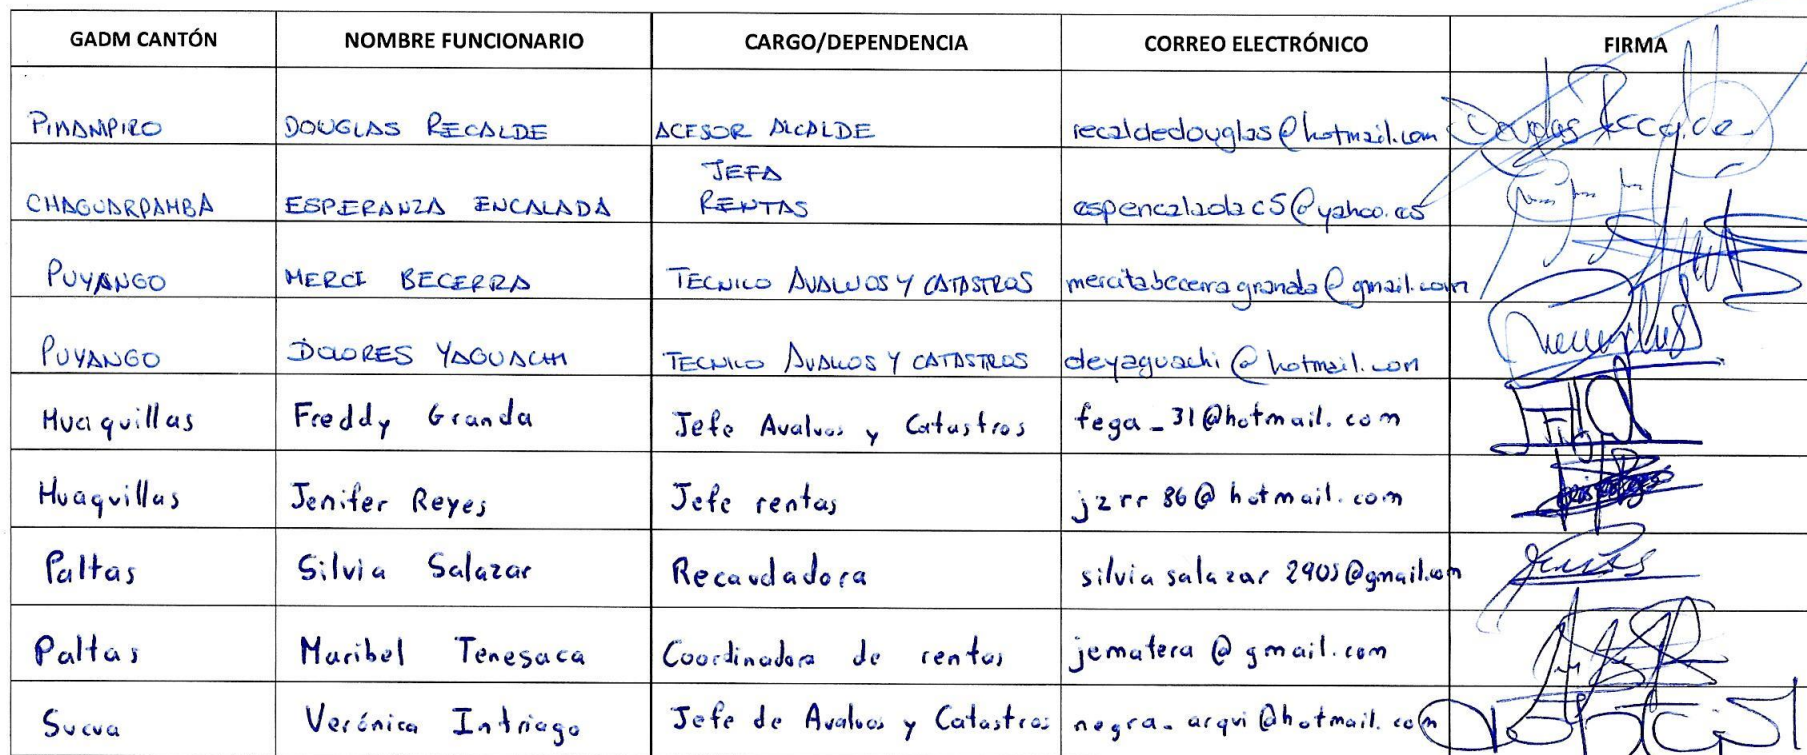 GADM CANTÓN NOMBRE FUNCIONARIO CARGO/DEPENDENCIA CORREO ELECTRÓNICO FIRMA
PIMAMPIRO DOUGLAS RECALDE ACESOR ALCALDE recaldedouglas@hotmail.com Douglas Recalde
CHAGUARPAMBA ESPERANZA ENCALADA JEFA RENTAS espencaladac5@yahoo.es
PUYANGO MERCI BECERRA TECNICO AVALUOS Y CATASTROS mercitabecerragranda@gmail.com
PUYANGO DOLORES YAGUACHI TECNICO AVALUOS Y CATASTROS deyaguachi@hotmail.com
Huaquillas Freddy Granda Jefe Avaluos y Catastros fega_31@hotmail.com
Huaquillas Jenifer Reyes Jefe rentas jzrr86@hotmail.com
Paltas Silvia Salazar Recaudadora silviasalazar2905@gmail.com
Paltas Maribel Tenesaca Coordinadora de rentas jematera@gmail.com
Sucua Verónica Intriago Jefe de Avaluos y Catastros negra_arqui@hotmail.com